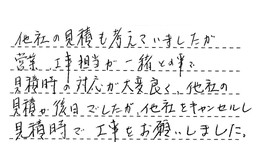 他社の見積も考えていましたが
営業、工事担当が一緒と事で
見積時の対応が大変良く、他社の
見積が後日でしたが、他社をキャンセルし
見積時で工事をお願いしました。